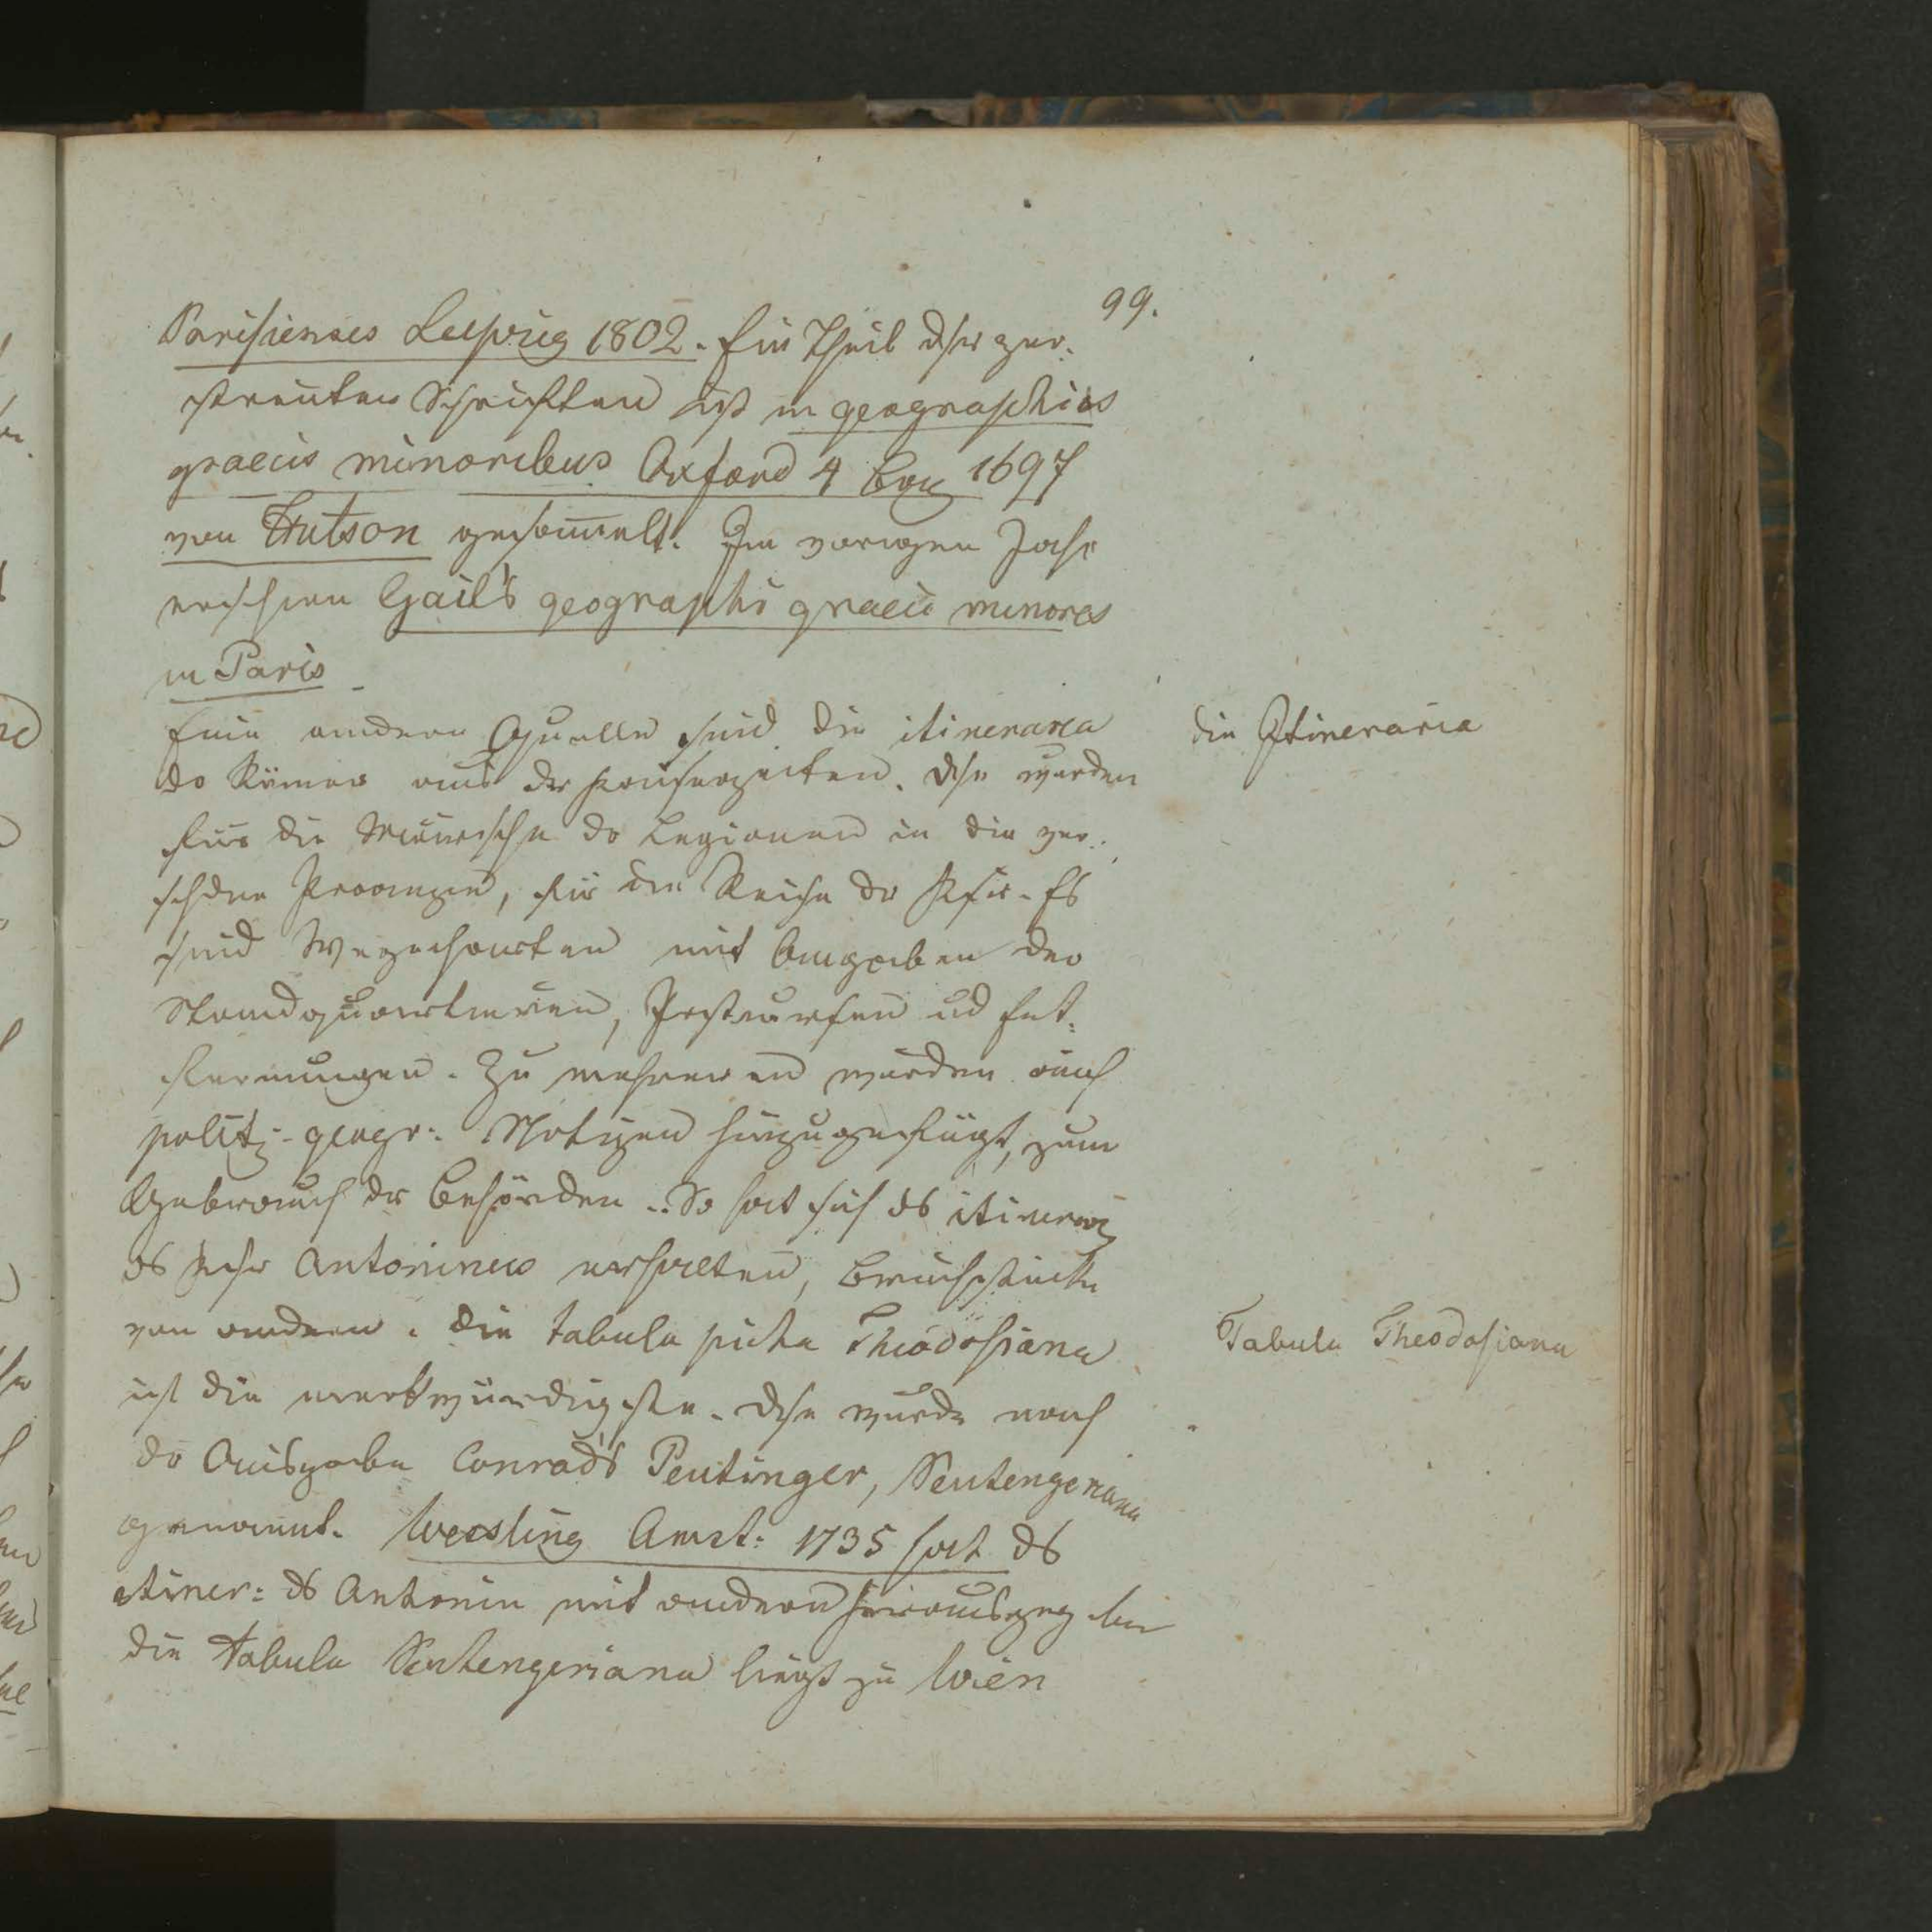 99.
Parisienses Leipzig 1802. Ein Theil dsr zer-
streuten Schriften ist in geographicis
graecis minoribus Oxford 4 1697
von Hutson gesam̄elt. Im vorigen Jahr
erschien Gail's geographi graeci minores
in Paris
Eine andere Quelle sind die itineraria
die Itineraria
dr Römer aus dr Kaiserzeiten. Dse wurden
für die Märsche dr Legionen in die ver-
schdnen Provinzen, für die Reise dr Ksr. Es
sind Wegecharten mit Angaben der
Standquartieren, und Ent-
fernungen. Zu mehreren wurden auch
polit:-geogr: Notizen hinzugefügt, zum
Gebrauch dr Behörden. So hat sich ds itinerar
ds Antoninus erhalten, Bruchstücke
von andern. Die tabula picta Theodosiana
Tabula Theodosiana
ist die merkwürdigste. Dse wurde nach
dr Ausgabe Conrad's Peutinger, Peutengeriana
genannt. Wessling Amst: 1735 hat ds
itiner: ds Antonin mit andern herausgegeben
die tabula Peutengeriana liegt zu Wien